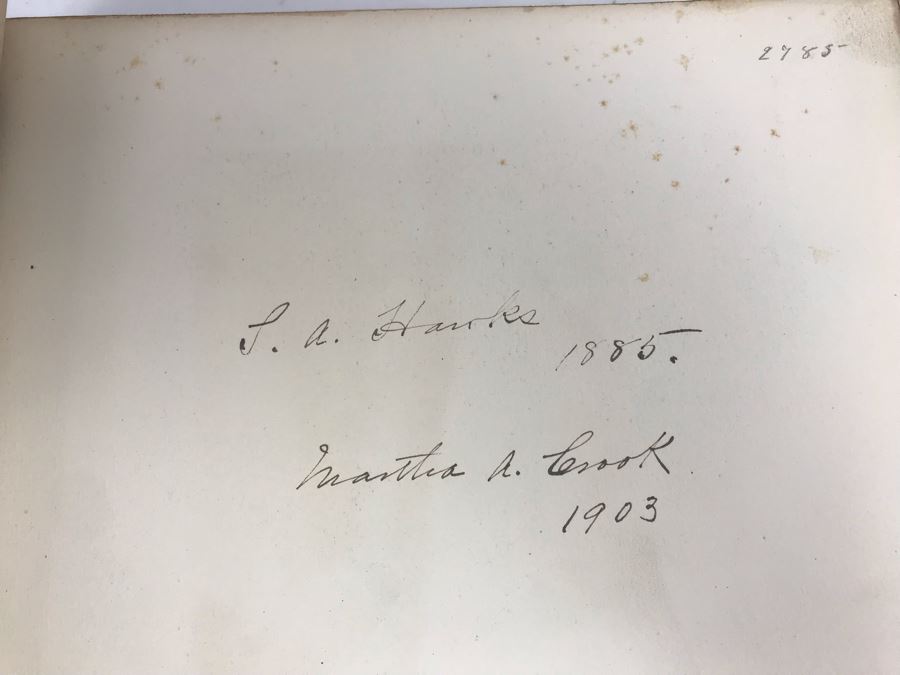 2785
S. A. Hawks
1885.
Martha A. Crook
1903